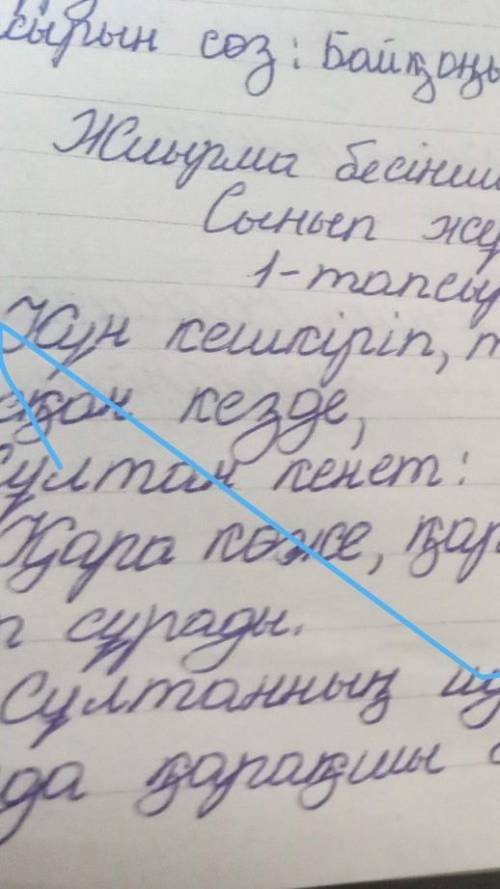 сырын сөз: Байқоңы
Жиырма бесінші
Сынып жұ
1-тапсыр
Күн кешкіріп, т
қан кезде,
Сұлтан кенет:
Қара көже, қара
п сұрады.
Сұлтанның
да қарақшы